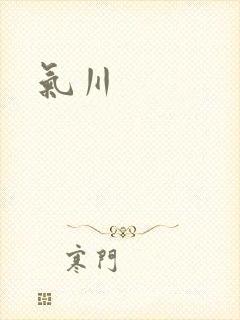 氣川
寒門